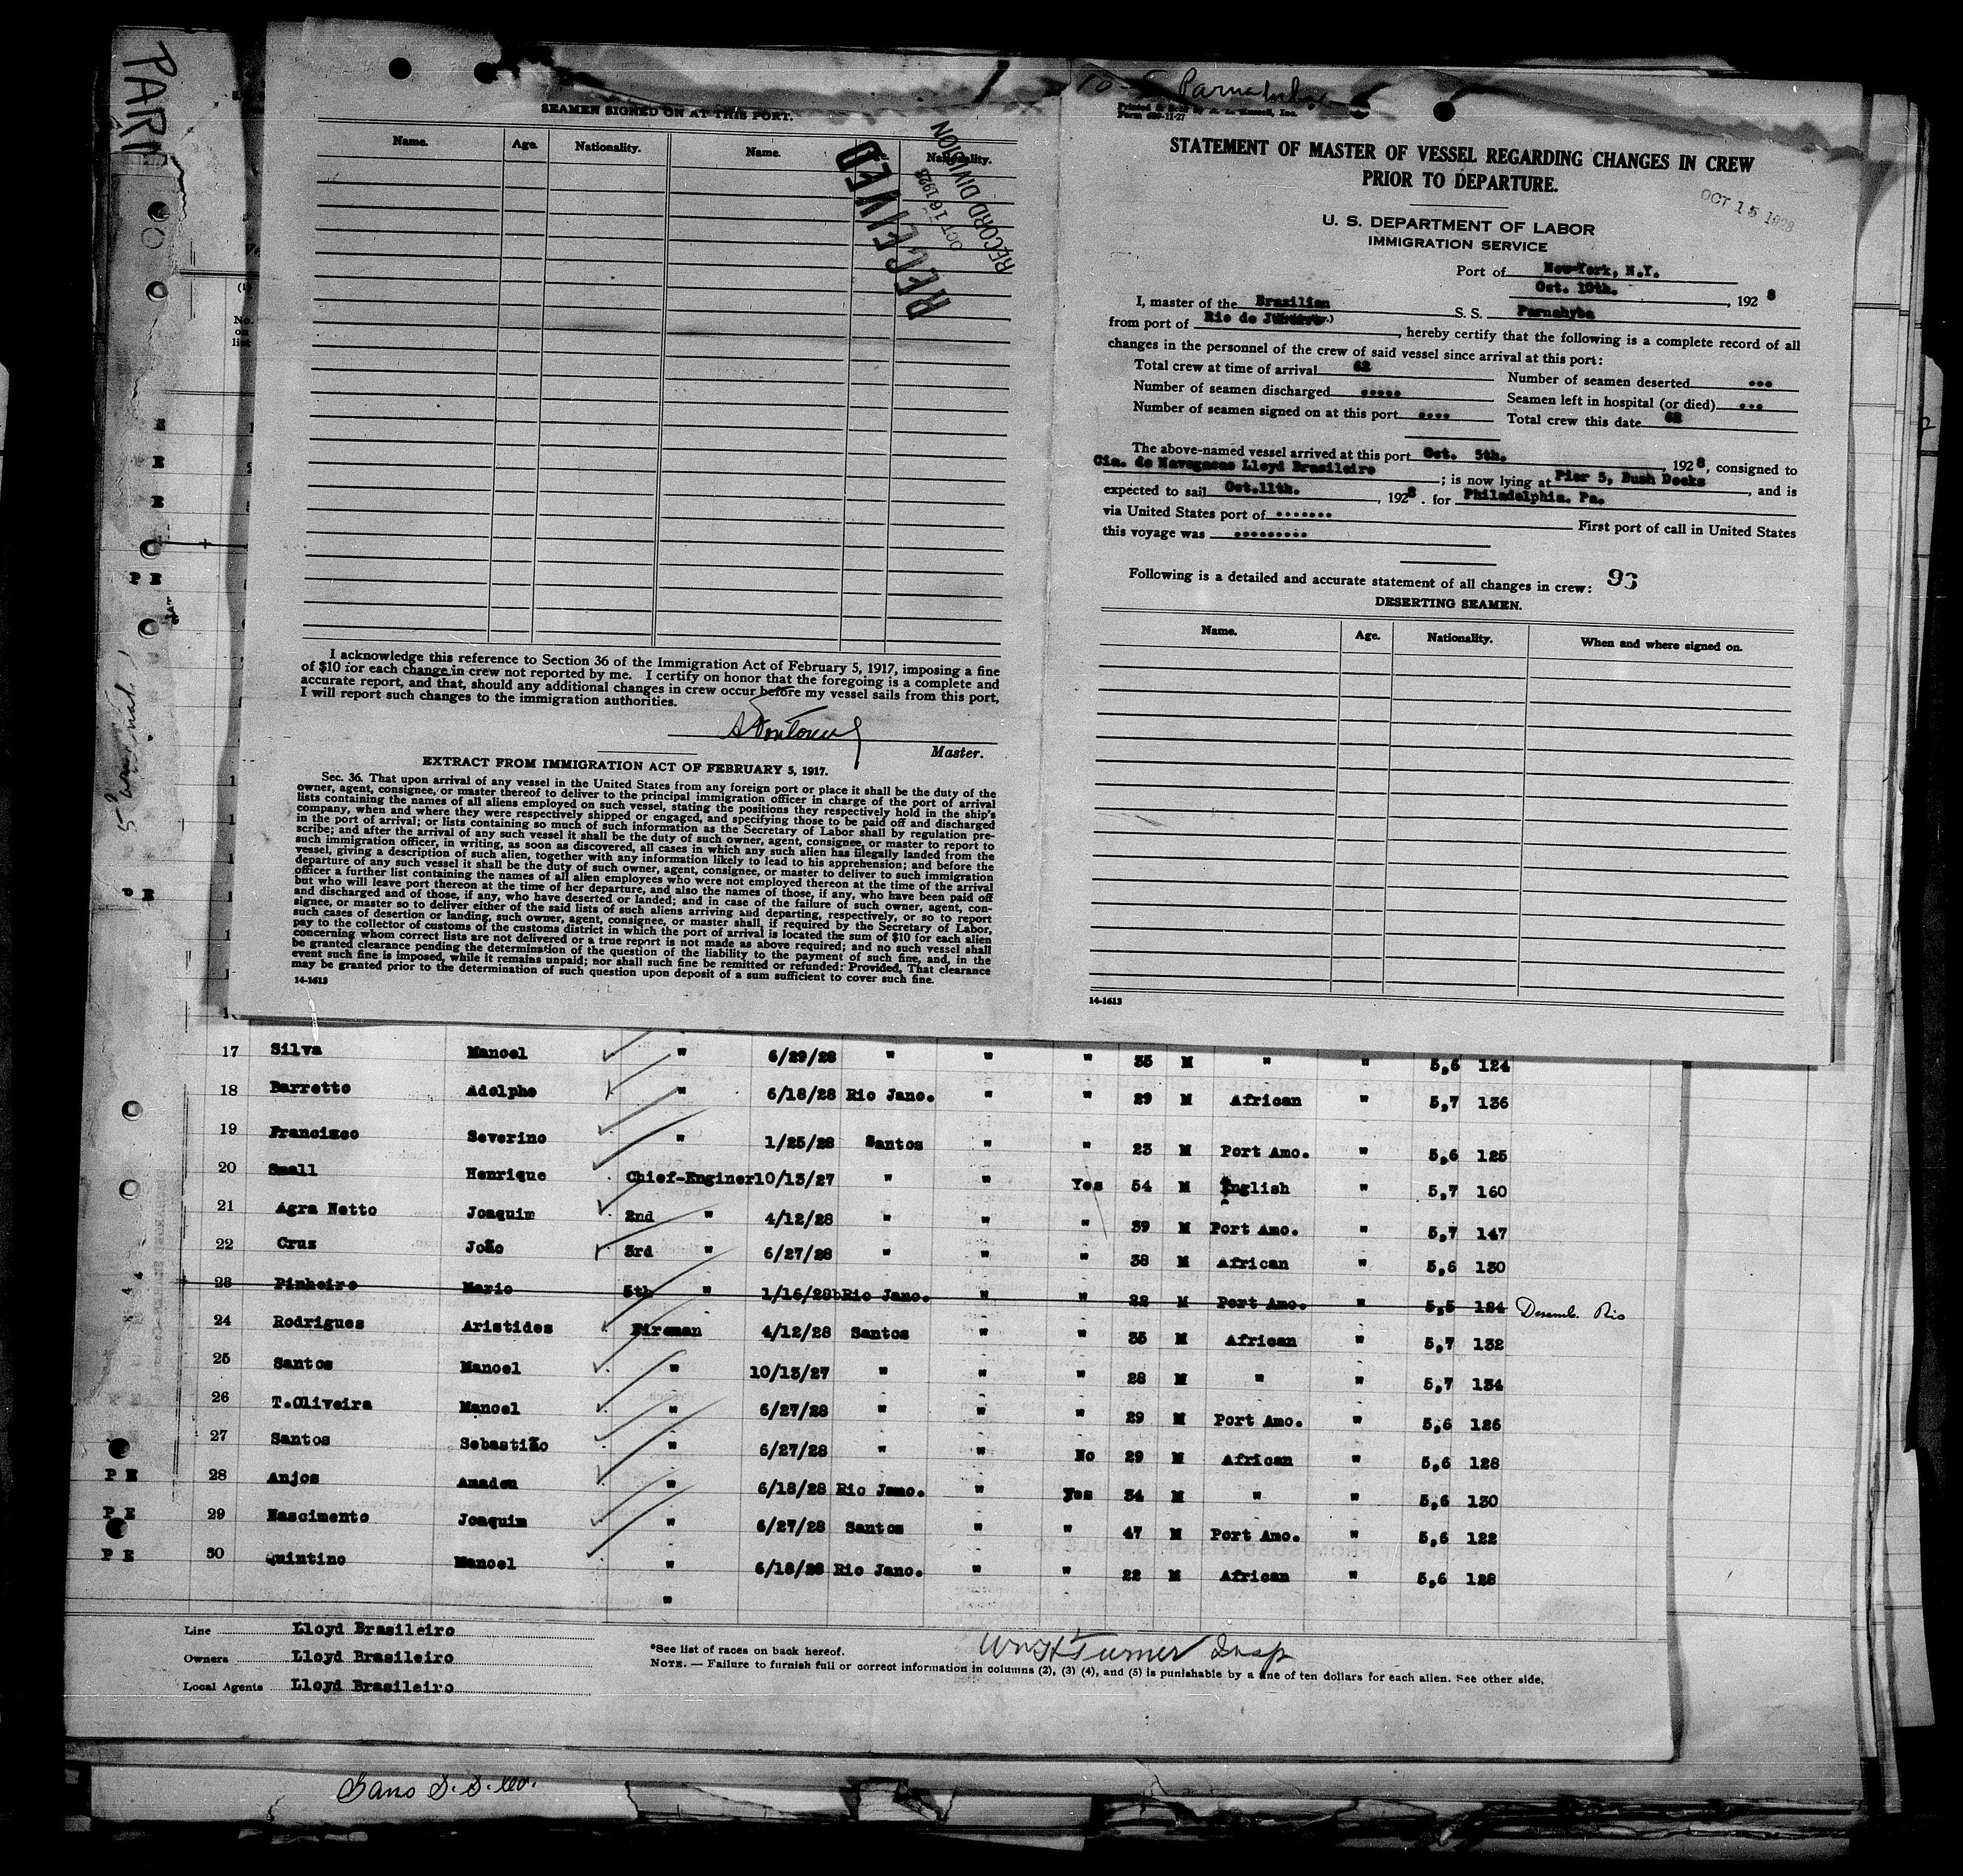 PARN
10-5 Parnahyba
SEAMEN SIGNED ON AT THIS PORT.
Name. Age. Nationality. Name. Nationality.
RECEIVED
OCT 16 1928
RECORD DIVISION
I acknowledge this reference to Section 36 of the Immigration Act of February 5, 1917, imposing a fine
of $10 for each change in crew not reported by me. I certify on honor that the foregoing is a complete and
accurate report, and that, should any additional changes in crew occur before my vessel sails from this port,
I will report such changes to the immigration authorities.
Master.
EXTRACT FROM IMMIGRATION ACT OF FEBRUARY 5, 1917.
Sec. 36. That upon arrival of any vessel in the United States from any foreign port or place it shall be the duty of the
owner, agent, consignee, or master thereof to deliver to the principal immigration officer in charge of the port of arrival
lists containing the names of all aliens employed on such vessel, stating the positions they respectively hold in the ship's
company, when and where they were respectively shipped or engaged, and specifying those to be paid off and discharged
in the port of arrival; or lists containing so much of such information as the Secretary of Labor shall by regulation pre-
scribe; and after the arrival of any such vessel it shall be the duty of such owner, agent, consignee, or master to report to
such immigration officer, in writing, as soon as discovered, all cases in which any such alien has illegally landed from the
vessel, giving a description of such alien, together with any information likely to lead to his apprehension; and before the
departure of any such vessel it shall be the duty of such owner, agent, consignee, or master to deliver to such immigration
officer a further list containing the names of all alien employees who were not employed thereon at the time of the arrival
but who will leave port thereon at the time of her departure, and also the names of those, if any, who have been paid off
and discharged and of those, if any, who have deserted or landed; and in case of the failure of such owner, agent, con-
signee, or master so to deliver either of the said lists of such aliens arriving and departing, respectively, or so to report
such cases of desertion or landing, such owner, agent, consignee, or master shall, if required by the Secretary of Labor,
pay to the collector of customs of the customs district in which the port of arrival is located the sum of $10 for each alien
concerning whom correct lists are not delivered or a true report is not made as above required; and no such vessel shall
be granted clearance pending the determination of the question of the liability to the payment of such fine, and, in the
event such fine is imposed, while it remains unpaid; nor shall such fine be remitted or refunded: Provided, That clearance
may be granted prior to the determination of such question upon deposit of a sum sufficient to cover such fine.
14-1613
STATEMENT OF MASTER OF VESSEL REGARDING CHANGES IN CREW
PRIOR TO DEPARTURE.
OCT 15 1928
U. S. DEPARTMENT OF LABOR
IMMIGRATION SERVICE
Port of New-York, N.Y.
Oct. 10th. , 192 8
I, master of the Brazilian S. S. Parnahyba
from port of Rio de , hereby certify that the following is a complete record of all
changes in the personnel of the crew of said vessel since arrival at this port:
Total crew at time of arrival 62 Number of seamen deserted ...
Number of seamen discharged ..... Seamen left in hospital (or died) ...
Number of seamen signed on at this port .... Total crew this date 62
The above-named vessel arrived at this port Oct. 5th. , 192 8, consigned to
Cia. de Navegacao Lloyd Brasileiro ; is now lying at Pier 5, Bush Docks , and is
expected to sail Oct.11th. , 192 8. for Philadelphia. Pa.
via United States port of ....... First port of call in United States
this voyage was .........
Following is a detailed and accurate statement of all changes in crew: 93
DESERTING SEAMEN.
Name. Age. Nationality. When and where signed on.
14-1613
17 Silva Manoel " 6/29/28 " " " 35 M " " 5,6 124
18 Barretto Adolpho " 6/18/28 Rio Jano. " " 29 M African " 5,7 136
19 Francisco Severino " 1/25/28 Santos " " 23 M Port Amo. " 5,6 125
20 Small Henrique Chief-Enginer 10/13/27 " " Yes 54 M English " 5,7 160
21 Agra Netto Joaquim 2nd " 4/12/28 " " " 39 M Port Amo. " 5,7 147
22 Cruz João 3rd " 6/27/28 " " " 38 M African " 5,6 130
23 Pinheiro Mario 5th " 1/16/28 Rio Jano. " " 22 M Port Amo. " 5,5 124 Desemb. Rio
24 Rodrigues Aristides Fireman 4/12/28 Santos " " 35 M African " 5,7 132
25 Santos Manoel " 10/13/27 " " " 28 M " " 5,7 134
26 T.Oliveira Manoel " 6/27/28 " " " 29 M Port Amo. " 5,6 126
27 Santos Sebastião " 6/27/28 " " No 29 M African " 5,6 128
PE 28 Anjos Amadeu " 6/18/28 Rio Jano. " Yes 34 M " " 5,6 130
PE 29 Nascimento Joaquim " 6/27/28 Santos " " 47 M Port Amo. " 5,6 122
PE 30 Quintino Manoel " 6/18/28 Rio Jano. " " 22 M African " 5,6 128
"
Line Lloyd Brasileiro
Owners Lloyd Brasileiro
Local Agents Lloyd Brasileiro
*See list of races on back hereof.
Wm H Turner Insp
NOTE. — Failure to furnish full or correct information in columns (2), (3) (4), and (5) is punishable by a fine of ten dollars for each alien. See other side.